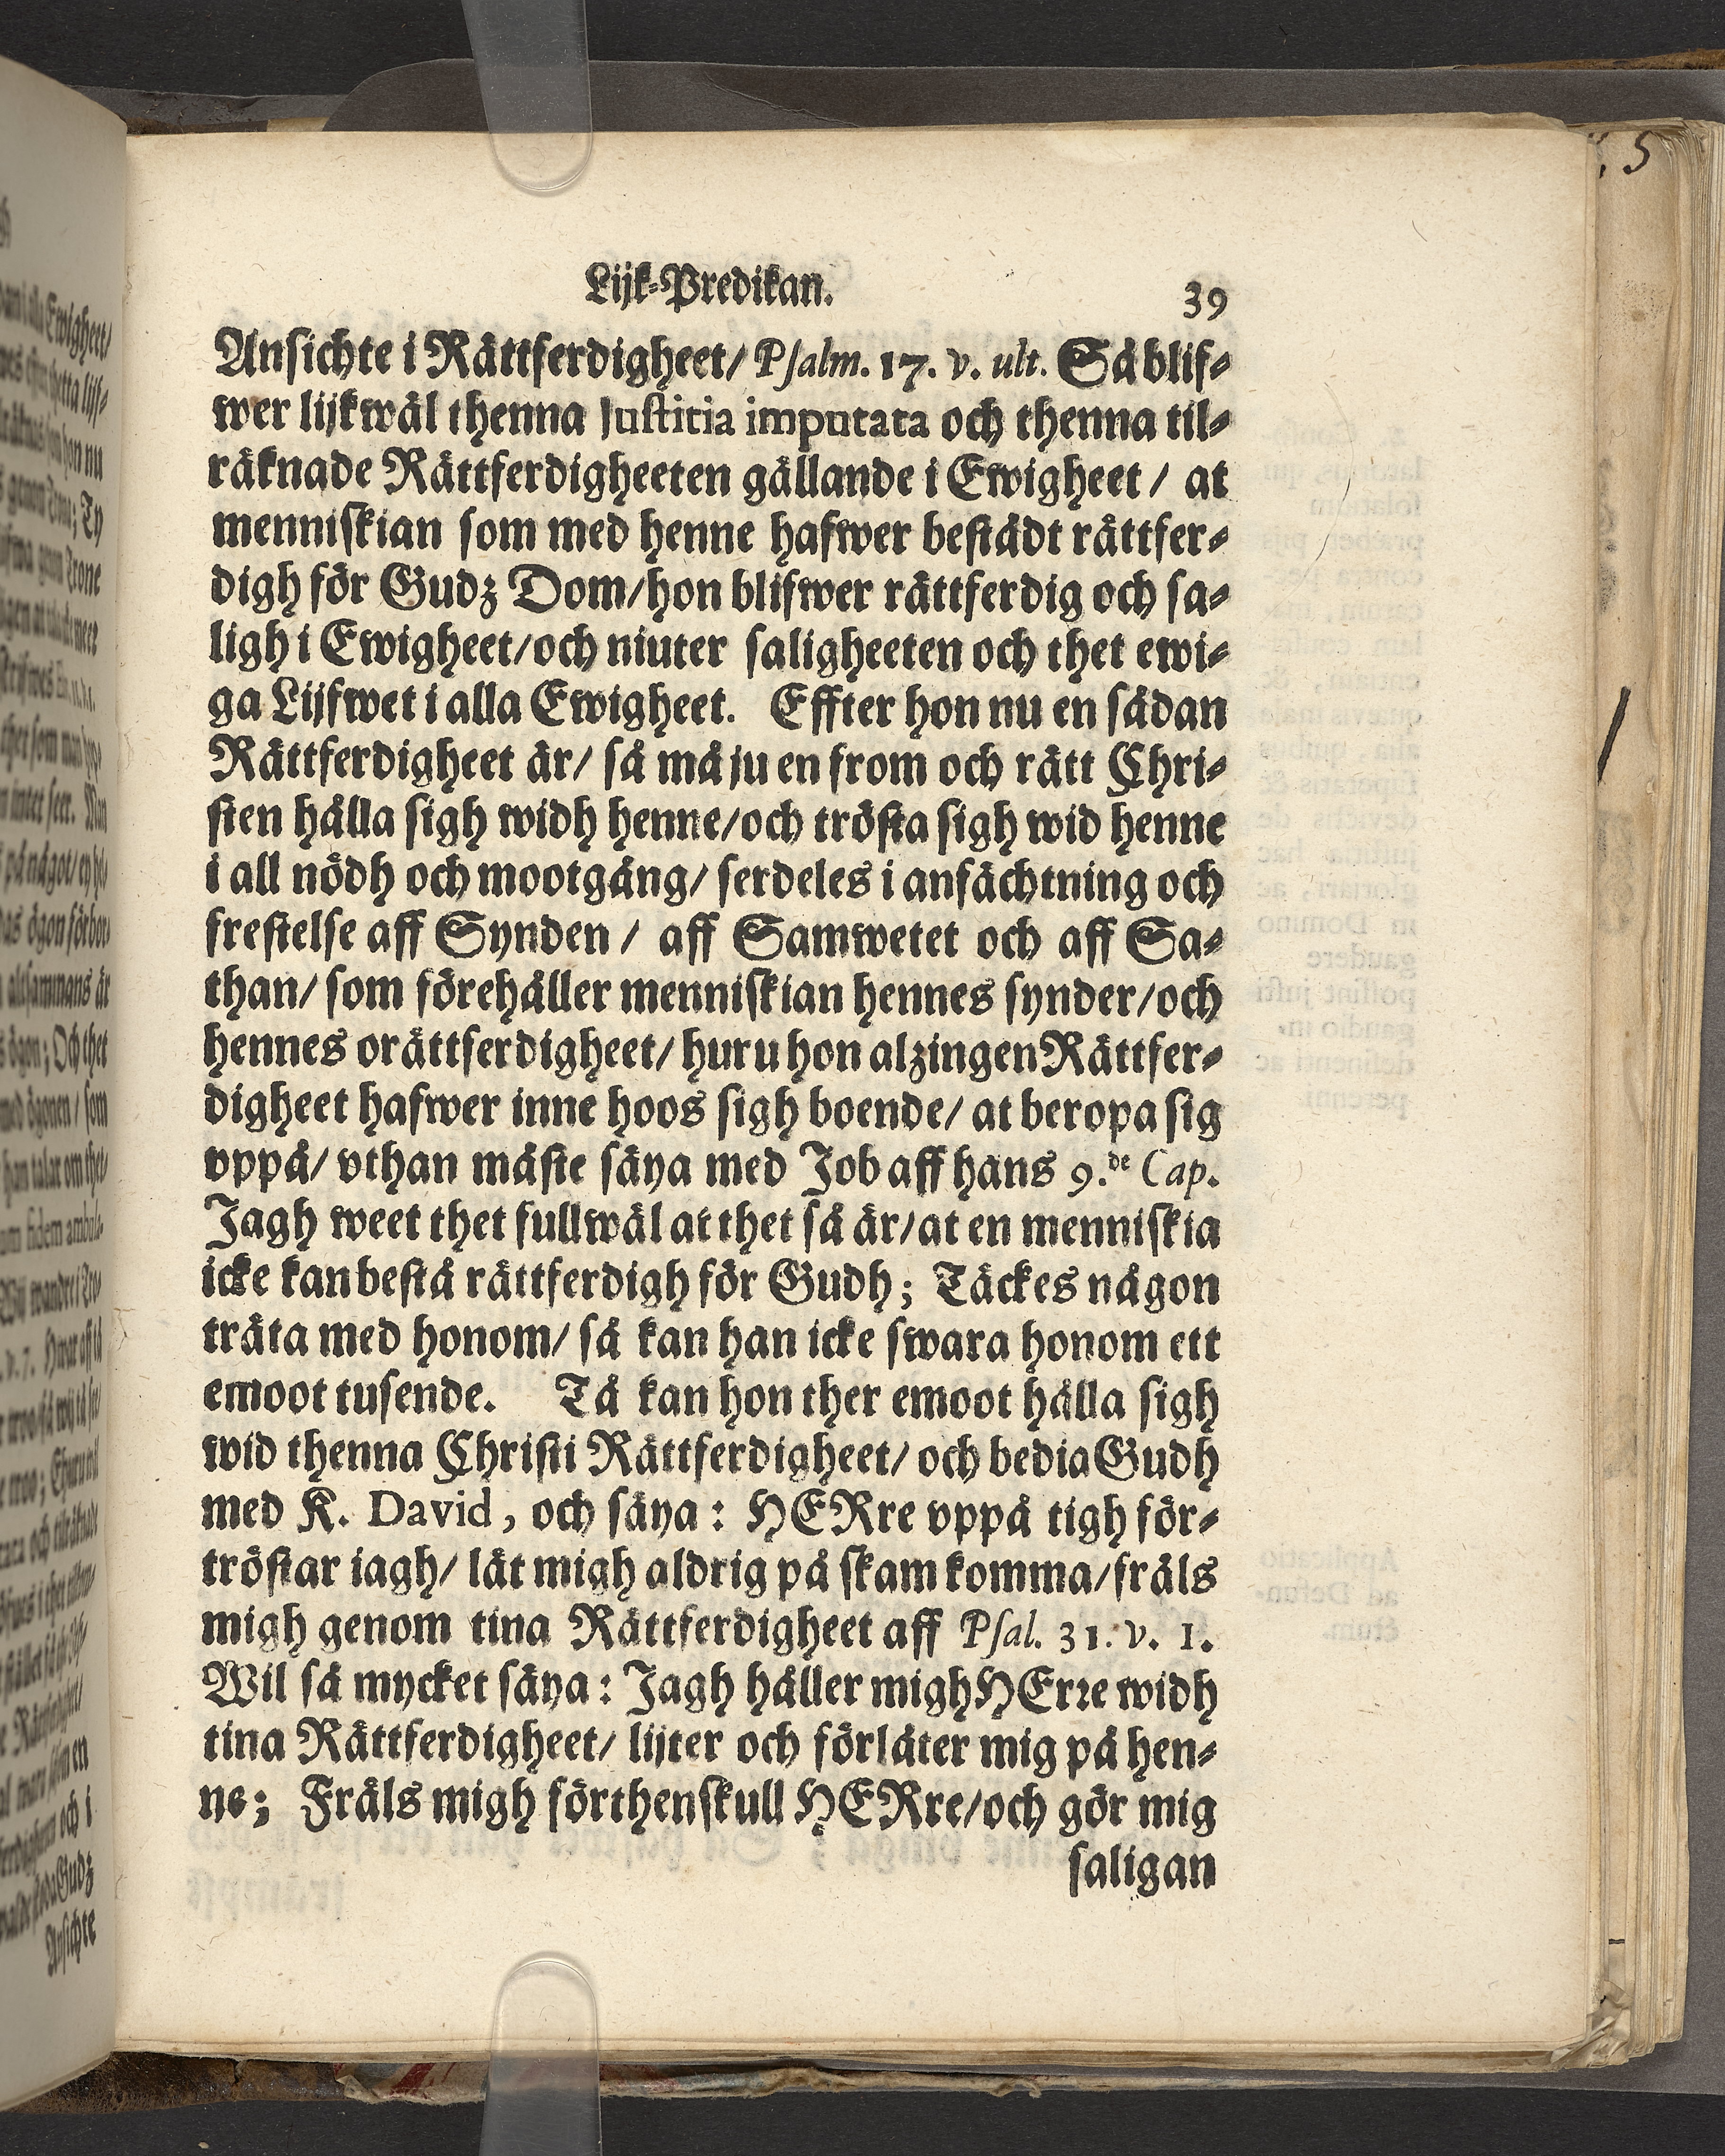 Lijk-Predikan. 39
Ansichte i Rättferdigheet/ Psalm. 17. v. ult. Så blif-
wer lijkwäl thenna Justitia imputata och thenna til-
räknade Rättferdigheeten gällande i Ewigheet / at
menniskian som med henne hafwer bestådt rättfer-
digh för Gudz Dom/hon blifwer rättferdig och sa-
ligh i Ewigheet/och niuter saligheeten och thet ewi-
ga Lijfwet i alla Ewigheet. Effter hon nu en sådan
Rättferdigheet är/ så må ju en from och rätt Chri-
sten hålla sigh widh henne/och trösta sigh wid henne
i all nödh och mootgång/ serdeles i anfächtning och
frestelse aff Synden / aff Samwetet och aff Sa-
than/ som förehåller menniskian hennes synder/och
hennes orättferdigheet/ huru hon alzingen Rättfer-
digheet hafwer inne hoos sigh boende/ at beropa sig
vppå/ vthan måste säya med Job aff hans 9.de Cap.
Jagh weet thet fullwäl at thet så är/at en menniskia
icke kan bestå rättferdigh för Gudh; Täckes någon
träta med honom/ så kan han icke swara honom ett
emoot tusende. Tå kan hon ther emoot hålla sigh
wid thenna Christi Rättferdigheet/ och bedia Gudh
med K. David, och säya: HERre vppå tigh för-
tröstar iagh/ låt migh aldrig på skam komma/fräls
migh genom tina Rättferdigheet aff Psal. 31. v. 1.
Wil så mycket säya: Jagh håller migh HErre widh
tina Rättferdigheet/ lijter och förlåter mig på hen-
ne; Fräls migh förthenskull HERre/och gör mig
saligan